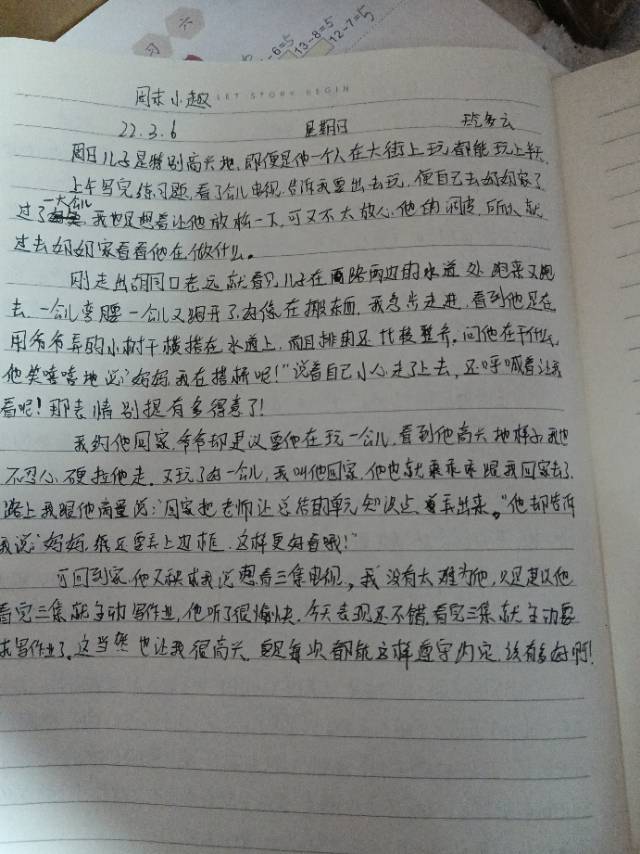 六
习
-6=5
13-8=5
12-7=5
LET STORY BEGIN
周末小趣
22.3.6 星期日 多云
周日儿子是特别高兴地,即便是他一个人在大街上玩都能玩上半天.
上午写完练习题,看了会儿电视,告诉我要出去玩,便自己去奶奶家了
一大会儿
过了 我也是想着让他放松一下,可又不太放心他的调皮,所以就
过去奶奶家看看他在做什么。
刚走出胡同口老远就看见儿子在马路两边的水道处跑来又跑
去,一会儿弯腰一会儿又跑开了,好像在搬东西,我急步走进,看到他是在
用爷爷弄的小树干横搭在水道上,而且排的还比较整齐.问他在干什么,
他笑嘻嘻地说:"妈妈,我在搭桥呢!"说着自己小心走了上去,还呼喊着让我
看呢!那表情别提有多得意了!
我约他回家,爷爷却建议要他在玩一会儿,看到他高兴地样子,我也
不忍心硬拉他走.又玩了好一会儿,我叫他回家,他也就乖乖跟我回家去了.
路上我跟他商量说:"回家把老师让总结的单元知识点弄出来。"他却告诉
我说:"妈妈,纸还要弄上边框,这样更好看哦!"
可回到家,他又缺求我说想看三集电视,我没有太难为他,只是建议他
看完三集就主动写作业,他听了很愉快.今天表现还不错,看完三集就主动要
求写作业了.这当然也让我很高兴.要是每次都能这样遵守约定,该有多好啊!